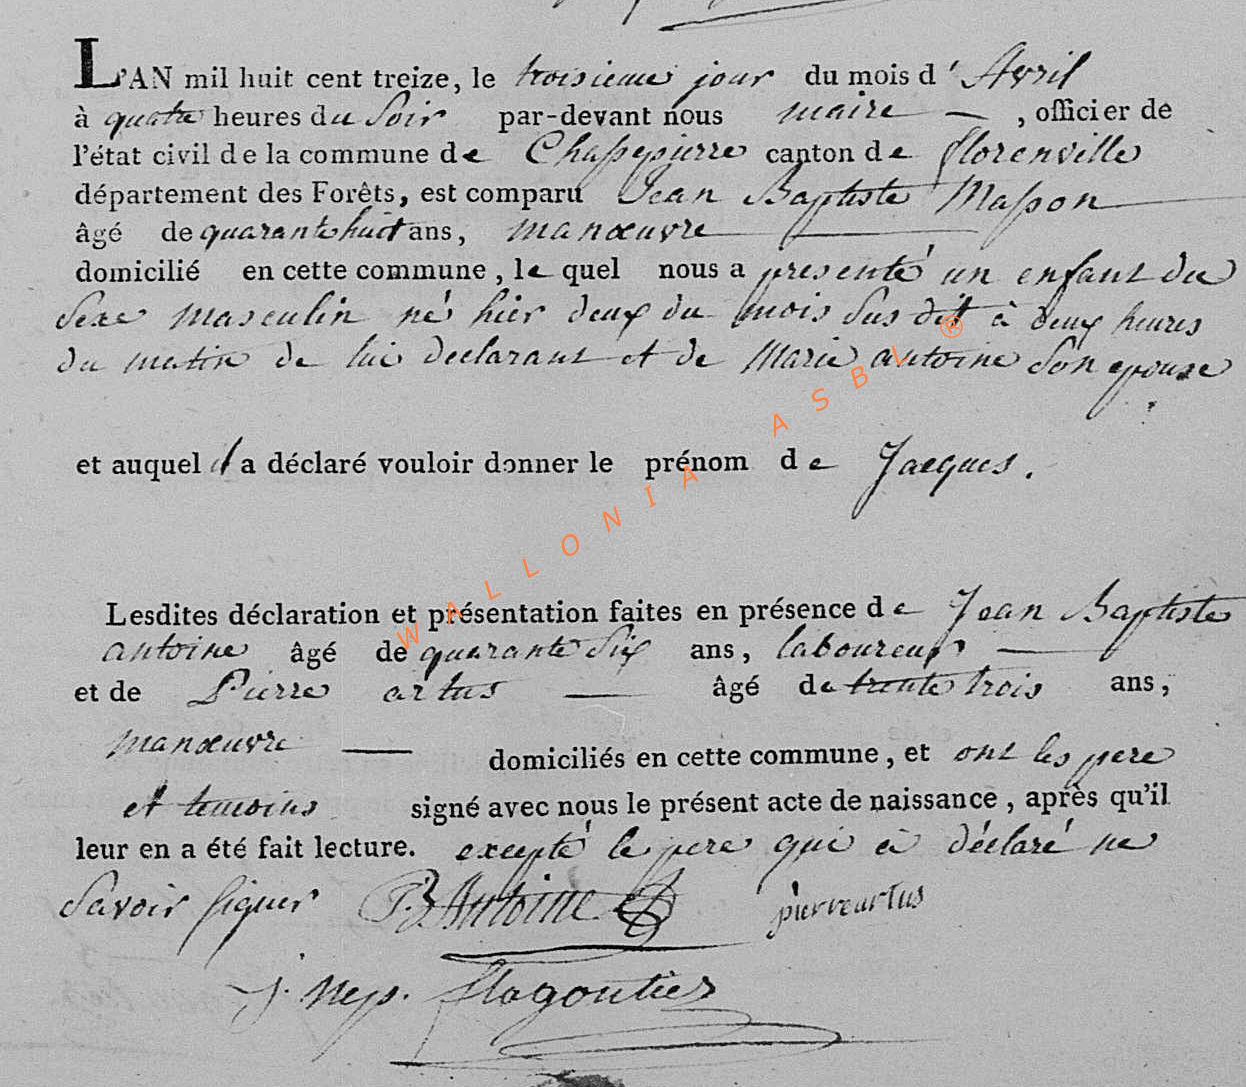 L'AN mil huit cent treize, le troisieme jour du mois d'Avril
à quatre heures du Soir par-devant nous maire — , officier de
l'état civil de la commune de Chassepierre canton de florenville
département des Forêts, est comparu Jean Baptiste Masson
âgé de quarante huit ans, manœuvre
domicilié en cette commune, le quel nous a presenté un enfant du
Sexe masculin né hier deux du mois Sus dit à deux heures
du matin de lui declarant et de Marie antoine Son epouse
et auquel il a déclaré vouloir donner le prénom de Jacques.
Lesdites déclaration et présentation faites en présence de Jean Baptiste
antoine âgé de quarante Six ans, laboureur —
et de Pierre artus — âgé de trente trois ans,
manœuvre — domiciliés en cette commune, et ont les pere
et temoins signé avec nous le présent acte de naissance, après qu'il
leur en a été fait lecture. excepté le pere qui à déclaré ne
Savoir signer J.B. Antoine pierreartus
J. Nep. flagontier
WALLONIA ASBL ®